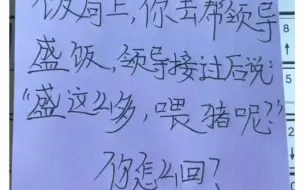 饭局上,你去帮领导
盛饭,领导接过后说:
“盛这么多,喂猪呢?”
你怎么回?
8